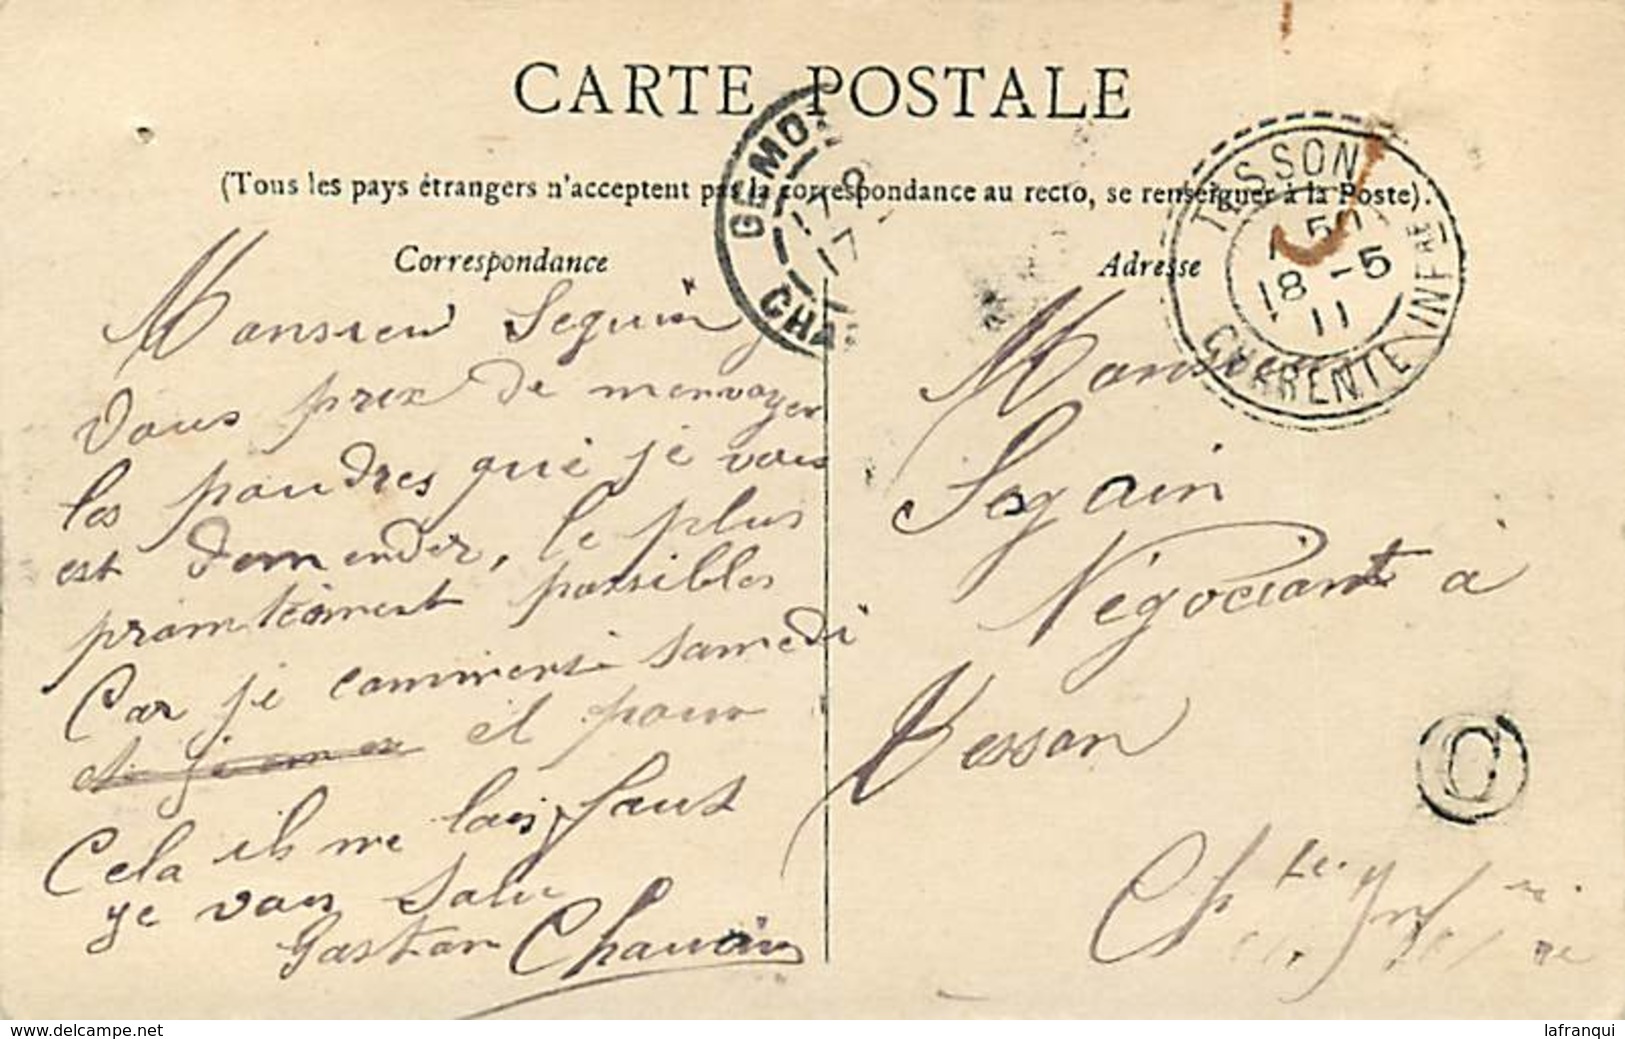 CARTE POSTALE
(Tous les pays étrangers n'acceptent pas la correspondance au recto, se renseigner à la Poste).
Correspondance
Monsieur Seguin
Vous prix de menvoyer
les poudres que je vous
est demender, le plus
promtément possibles
Car je commense samedi
et pour
Cela ils me lais faut
je vous salue
Gaston Chauvin
Adresse
Monsieur
Seguin
Négociant à
Tesson
Chte Infre
GÉMO
17
CHA
TESSON
18 -5
11
CHARENTE INFRE
O
www.delcampe.net
lafranqui